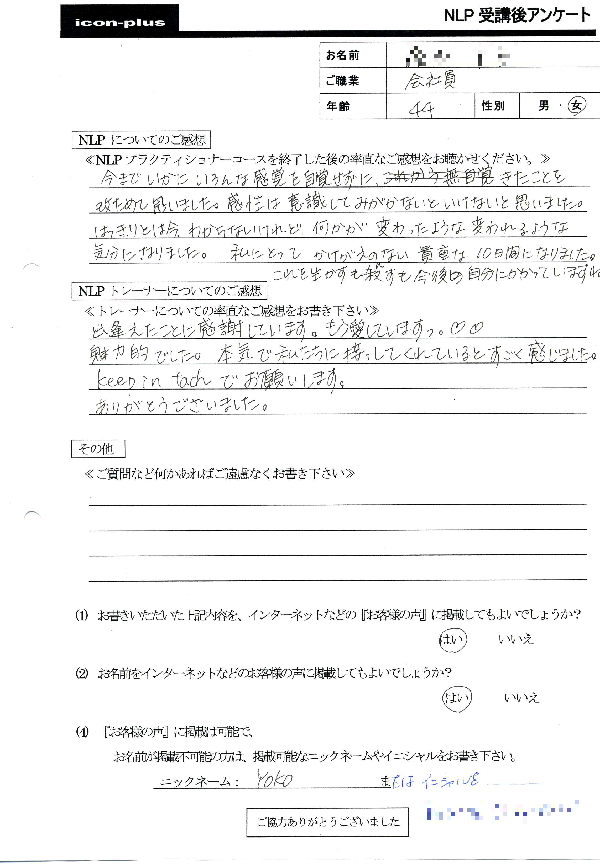 icon-plus
NLP 受講後アンケート
お名前
ご職業 会社員
年齢 44 性別 男・女
NLP についてのご感想
≪NLPプラクティショナーコースを終了した後の率直なご感想をお聴かせください。≫
今までいかに いろんな感覚を自覚せずに、無自覚 きたことを
改ためて思いました。感性は意識してみがかないといけないと思いました。
はっきりとは今 わからないけれど 何かが 変わったような 変われるような
気分になりました。 私にとって かけがえのない 貴重な 10日間になりました。
これを生かすも殺すも今後の自分にかかっていますね
NLP トレーナーについてのご感想
≪トレーナーについての率直なご感想をお書き下さい≫
出逢えたことに感謝しています。もう愛してしますっ。♡♡
魅力的でした。本気で私たちに接してくれているとすごく感じました。
keep in tach でお願いします。
ありがとうございました。
その他
≪ご質問など何かあればご遠慮なくお書き下さい≫
(1) お書きいただいた上記内容を、インターネットなどの『お客様の声』に掲載してもよいでしょうか?
はい いいえ
(2) お名前をインターネットなどのお客様の声に掲載してもよいでしょうか?
はい いいえ
(4) 『お客様の声』に掲載は可能で、
お名前が掲載不可能の方は、掲載可能なニックネームやイニシャルをお書き下さい。
ニックネーム: YOKO または イニシャル
ご協力ありがとうございました